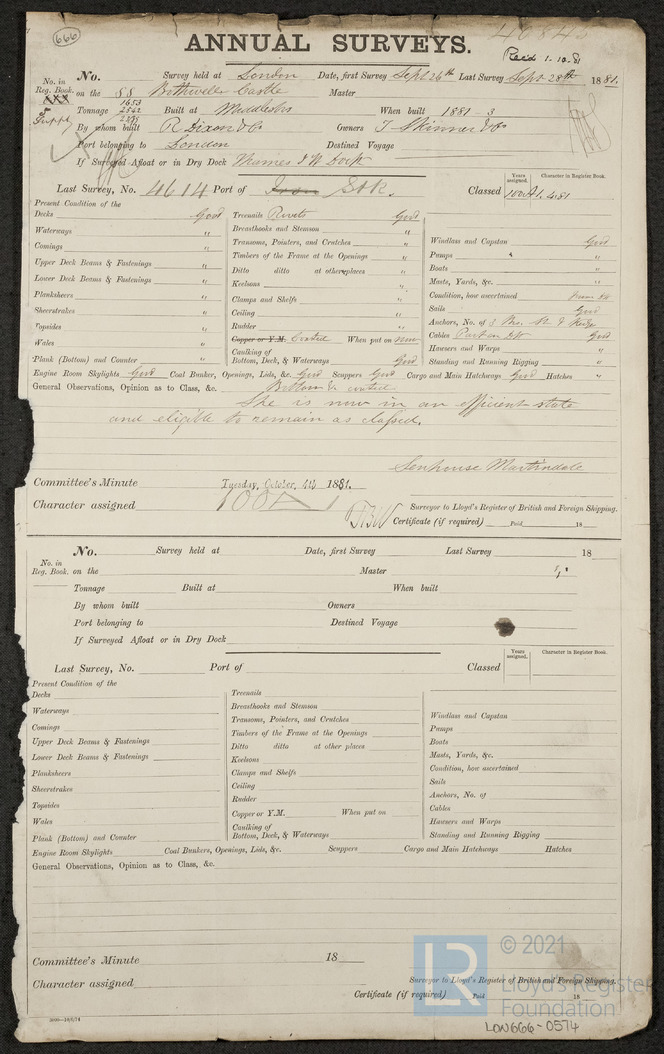 666
4684
ANNUAL SURVEYS.
Recd 1.10.81
No. in Reg. Book.
No. Survey held at London Date, first Survey Sept 26th Last Survey Sept 28th 1881.
on the SS Bothwell Castle Master
Tonnage 1653 2542 Built at Middlesbro When built 1881 - 3
By whom built R. Dixon & Co Owners T Skinner & Co
Port belonging to London Destined Voyage
If Surveyed Afloat or in Dry Dock Thames I W Dock
Last Survey, No. 4614 Port of Iron Stk. Classed 100A1.4.81
Years assigned. Character in Register Book.
Present Condition of the
Decks Good
Waterways "
Comings "
Upper Deck Beams & Fastenings "
Lower Deck Beams & Fastenings "
Planksheers "
Sheerstrakes "
Topsides "
Wales "
Plank (Bottom) and Counter "
Treenails Rivets Good
Breasthooks and Stemson "
Transoms, Pointers, and Crutches "
Timbers of the Frame at the Openings "
Ditto ditto at other places "
Keelsons "
Clamps and Shelfs "
Ceiling "
Rudder "
Copper or Y.M. Coated When put on now
Caulking of Bottom, Deck, & Waterways Good
Windlass and Capstan Good
Pumps "
Boats "
Masts, Yards, &c. "
Condition, how ascertained
Sails Good
Anchors, No. of 3 & Kedge
Cables Good
Hawsers and Warps "
Standing and Running Rigging "
Engine Room Skylights Good Coal Bunker, Openings, Lids, &c. Good Scuppers Good Cargo and Main Hatchways Good Hatches "
General Observations, Opinion as to Class, &c. Bottom & coated
She is now in an efficient state
and eligible to remain as classed.
Senhouse Martindale
Committee's Minute Tuesday, October, 4th 1881.
Character assigned 100A1
Surveyor to Lloyd's Register of British and Foreign Shipping.
Certificate (if required) Paid 18
No. in Reg. Book.
No. Survey held at Date, first Survey Last Survey 18
on the Master
Tonnage Built at When built
By whom built Owners
Port belonging to Destined Voyage
If Surveyed Afloat or in Dry Dock
Last Survey, No. Port of Classed
Years assigned. Character in Register Book.
Present Condition of the
Decks
Waterways
Comings
Upper Deck Beams & Fastenings
Lower Deck Beams & Fastenings
Planksheers
Sheerstrakes
Topsides
Wales
Plank (Bottom) and Counter
Treenails
Breasthooks and Stemson
Transoms, Pointers, and Crutches
Timbers of the Frame at the Openings
Ditto ditto at other places
Keelsons
Clamps and Shelfs
Ceiling
Rudder
Copper or Y.M. When put on
Caulking of Bottom, Deck, & Waterways
Windlass and Capstan
Pumps
Boats
Masts, Yards, &c.
Condition, how ascertained
Sails
Anchors, No. of
Cables
Hawsers and Warps
Standing and Running Rigging
Engine Room Skylights Coal Bunkers, Openings, Lids, &c. Scuppers Cargo and Main Hatchways Hatches
General Observations, Opinion as to Class, &c.
Committee's Minute 18
Character assigned
Surveyor to Lloyd's Register of British and Foreign Shipping.
Certificate (if required) Paid 18
LR © 2021
Lloyd's Register
Foundation
LON666-0574